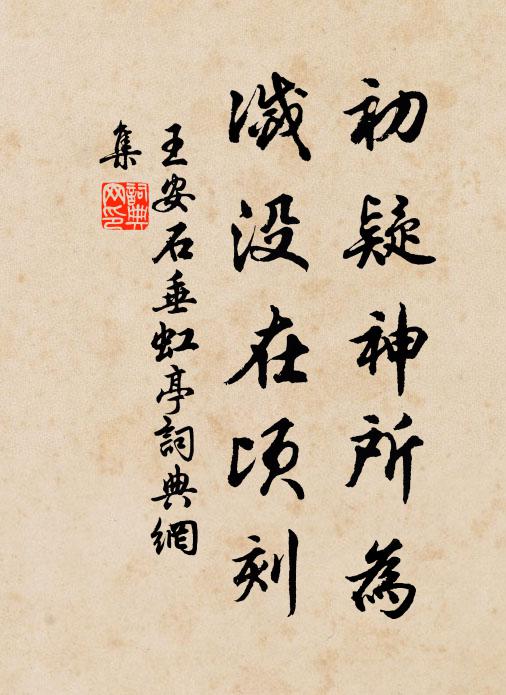 初疑神所為
滅没在頃刻
王安石垂虹亭詞典網
集
詞典網印